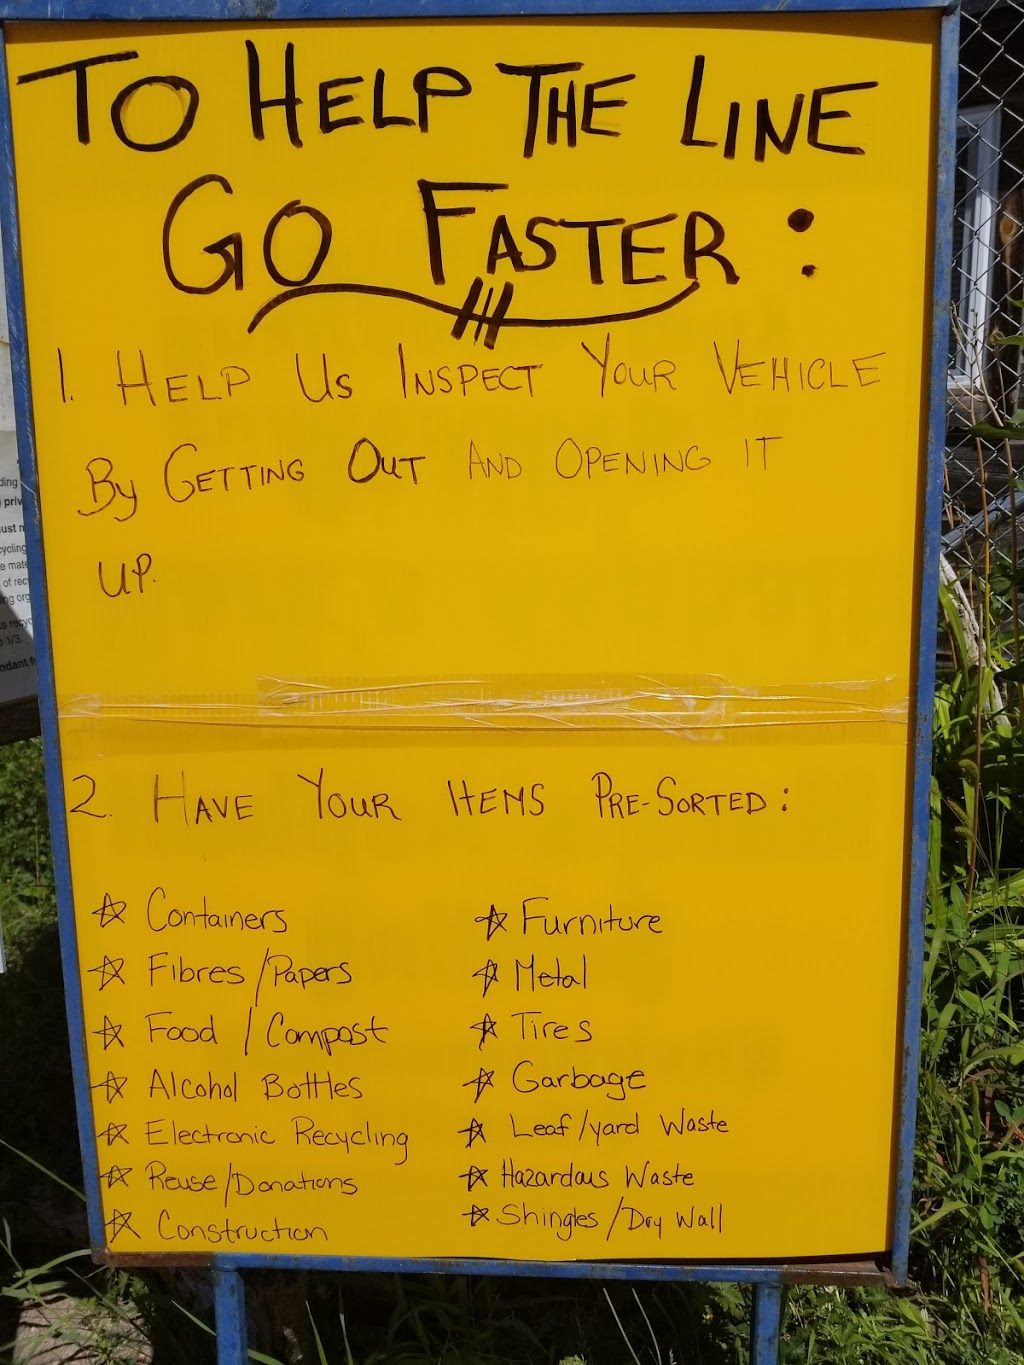 TO HELP THE LINE
GO FASTER:
1. HELP US INSPECT YOUR VEHICLE
By GETTING OUT AND OPENING IT
UP.
2. HAVE YOUR ITEMS PRE-SORTED:
☆ Containers
☆ Fibres/Papers
☆ Food / Compost
☆ Alcohol Bottles
☆ Electronic Recycling
☆ Reuse/Donations
☆ Construction
☆ Furniture
☆ Metal
☆ Tires
☆ Garbage
☆ Leaf/yard Waste
☆ Hazardous Waste
☆ Shingles/Dry Wall